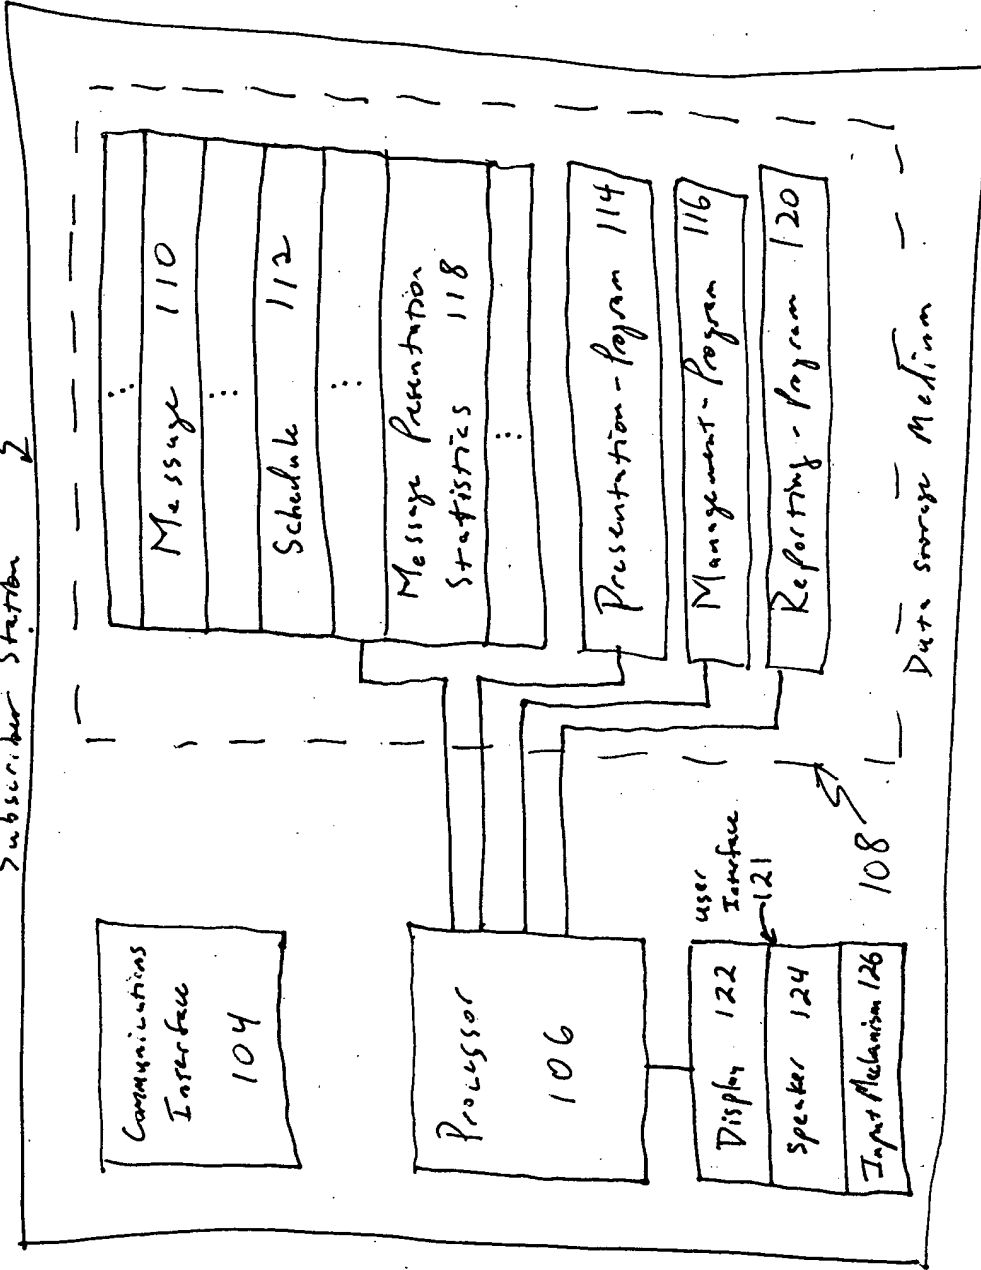 Subscriber Station 2
Communications
Interface
104
Processor
106
User
Interface
121
Display 122
Speaker 124
Input Mechanism 126
108
⋮
Message 110
⋮
Schedule 112
⋮
Message Presentation
Statistics 118
⋮
Presentation-Program 114
Management-Program 116
Reporting-Program 120
Data Storage Medium